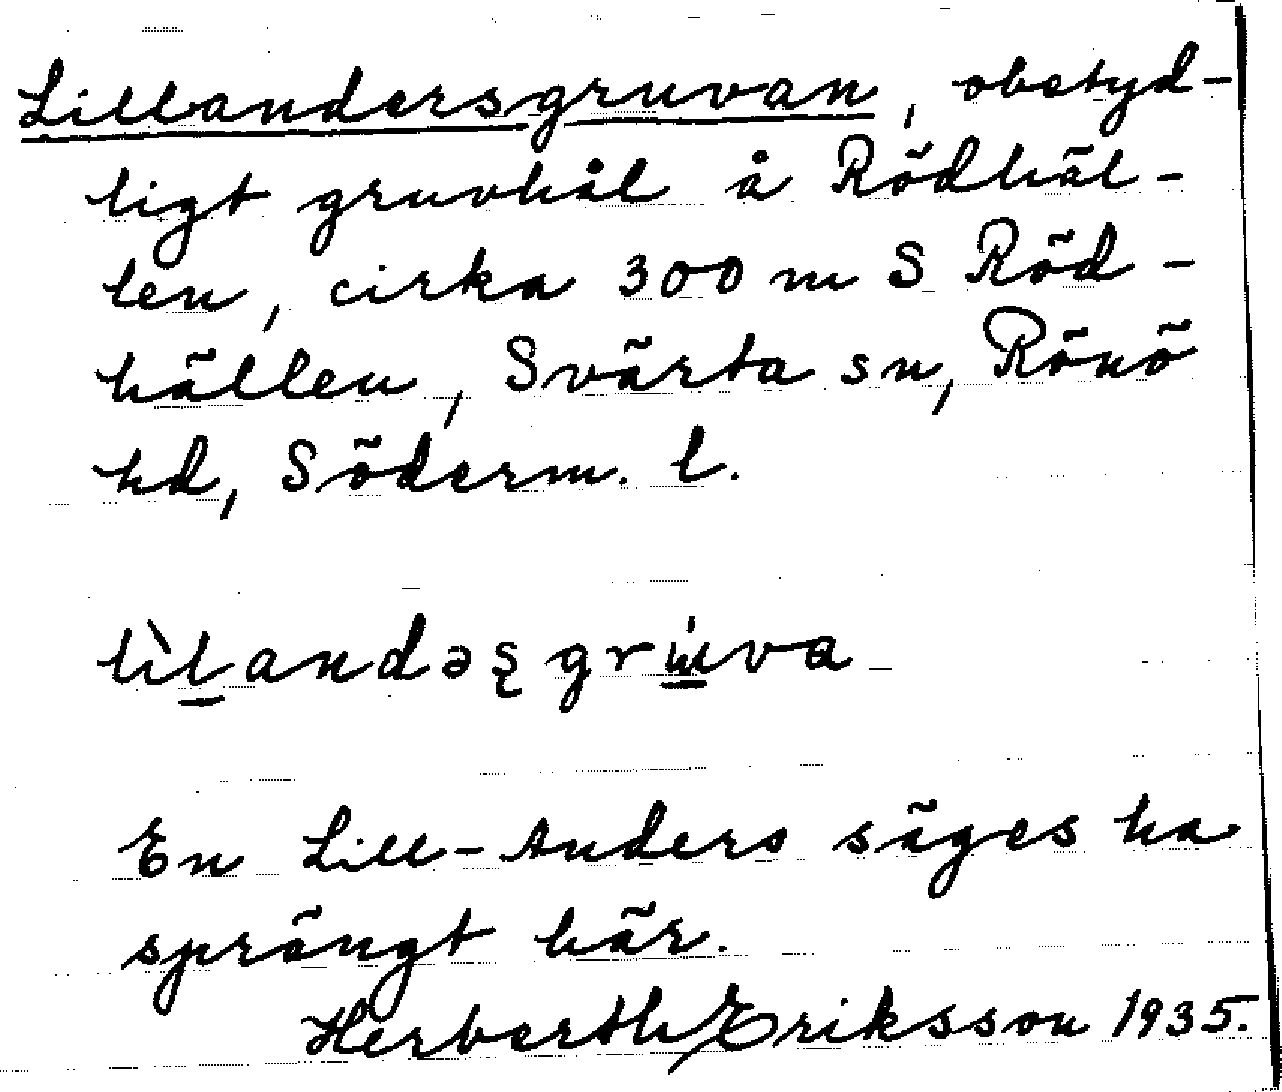 Lillandersgruvan, obetyd-
ligt gruvhål å Rödhäl-
len, cirka 300 m S Röd-
hällen, Svärta sn, Rönö
hd, Söderm. l.
lìl̲andəʂ gru̲̍va
En Lill-Anders säges ha
sprängt här.
Herberth Eriksson 1935.